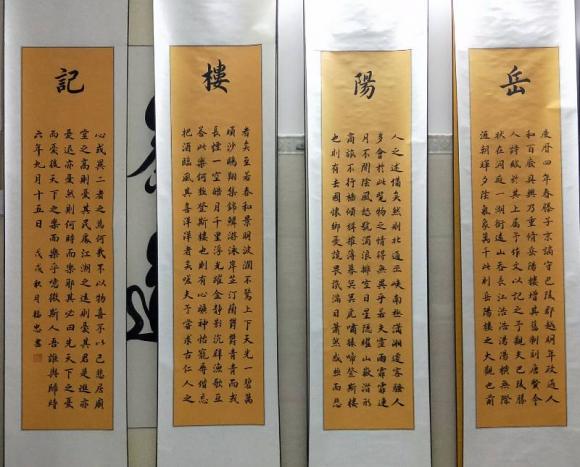 岳
慶曆四年春滕子京謫守巴陵郡越明年政通人
和百廢具興乃重修岳陽樓增其舊制刻唐賢今
人詩賦於其上屬予作文以記之予觀夫巴陵勝
狀在洞庭一湖銜遠山吞長江浩浩湯湯橫無際
涯朝暉夕陰氣象萬千此則岳陽樓之大觀也前
陽
人之述備矣然則北通巫峽南極瀟湘遷客騷人
多會於此覽物之情得無異乎若夫霪雨霏霏連
月不開陰風怒號濁浪排空日星隱耀山嶽潛形
商旅不行檣傾楫摧薄暮冥冥虎嘯猿啼登斯樓
也則有去國懷鄉憂讒畏譏滿目蕭然感極而悲
樓
者矣至若春和景明波瀾不驚上下天光一碧萬
頃沙鷗翔集錦鱗游泳岸芷汀蘭鬱鬱青青而或
長煙一空皓月千里浮光耀金靜影沉璧漁歌互
答此樂何極登斯樓也則有心曠神怡寵辱偕忘
把酒臨風其喜洋洋者矣嗟夫予嘗求古仁人之
記
心或異二者之為何哉不以物喜不以己悲居廟
堂之高則憂其民處江湖之遠則憂其君是進亦
憂退亦憂然則何時而樂耶其必曰先天下之憂
而憂後天下之樂而樂乎噫微斯人吾誰與歸時
六年九月十五日 戊戌秋月 忠書